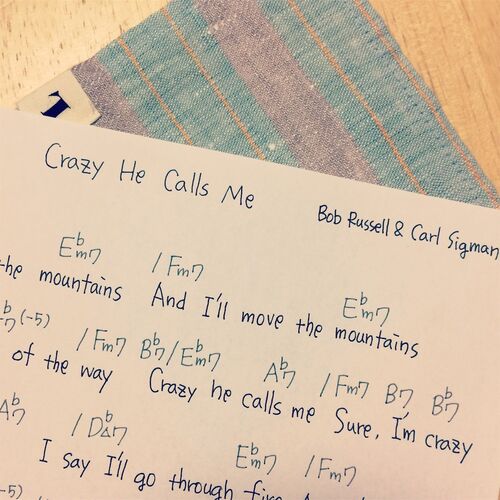 Crazy He Calls Me
Bob Russell & Carl Sigman
E♭m7 /Fm7 E♭m7
the mountains And I'll move the mountains
♭7(-5) /Fm7 B♭7/E♭m7 A♭7 /Fm7 B7 B♭7
of the way Crazy he calls me Sure, I'm crazy
A♭7 /D♭△7 E♭m7 /Fm7
I say I'll go through
-5)